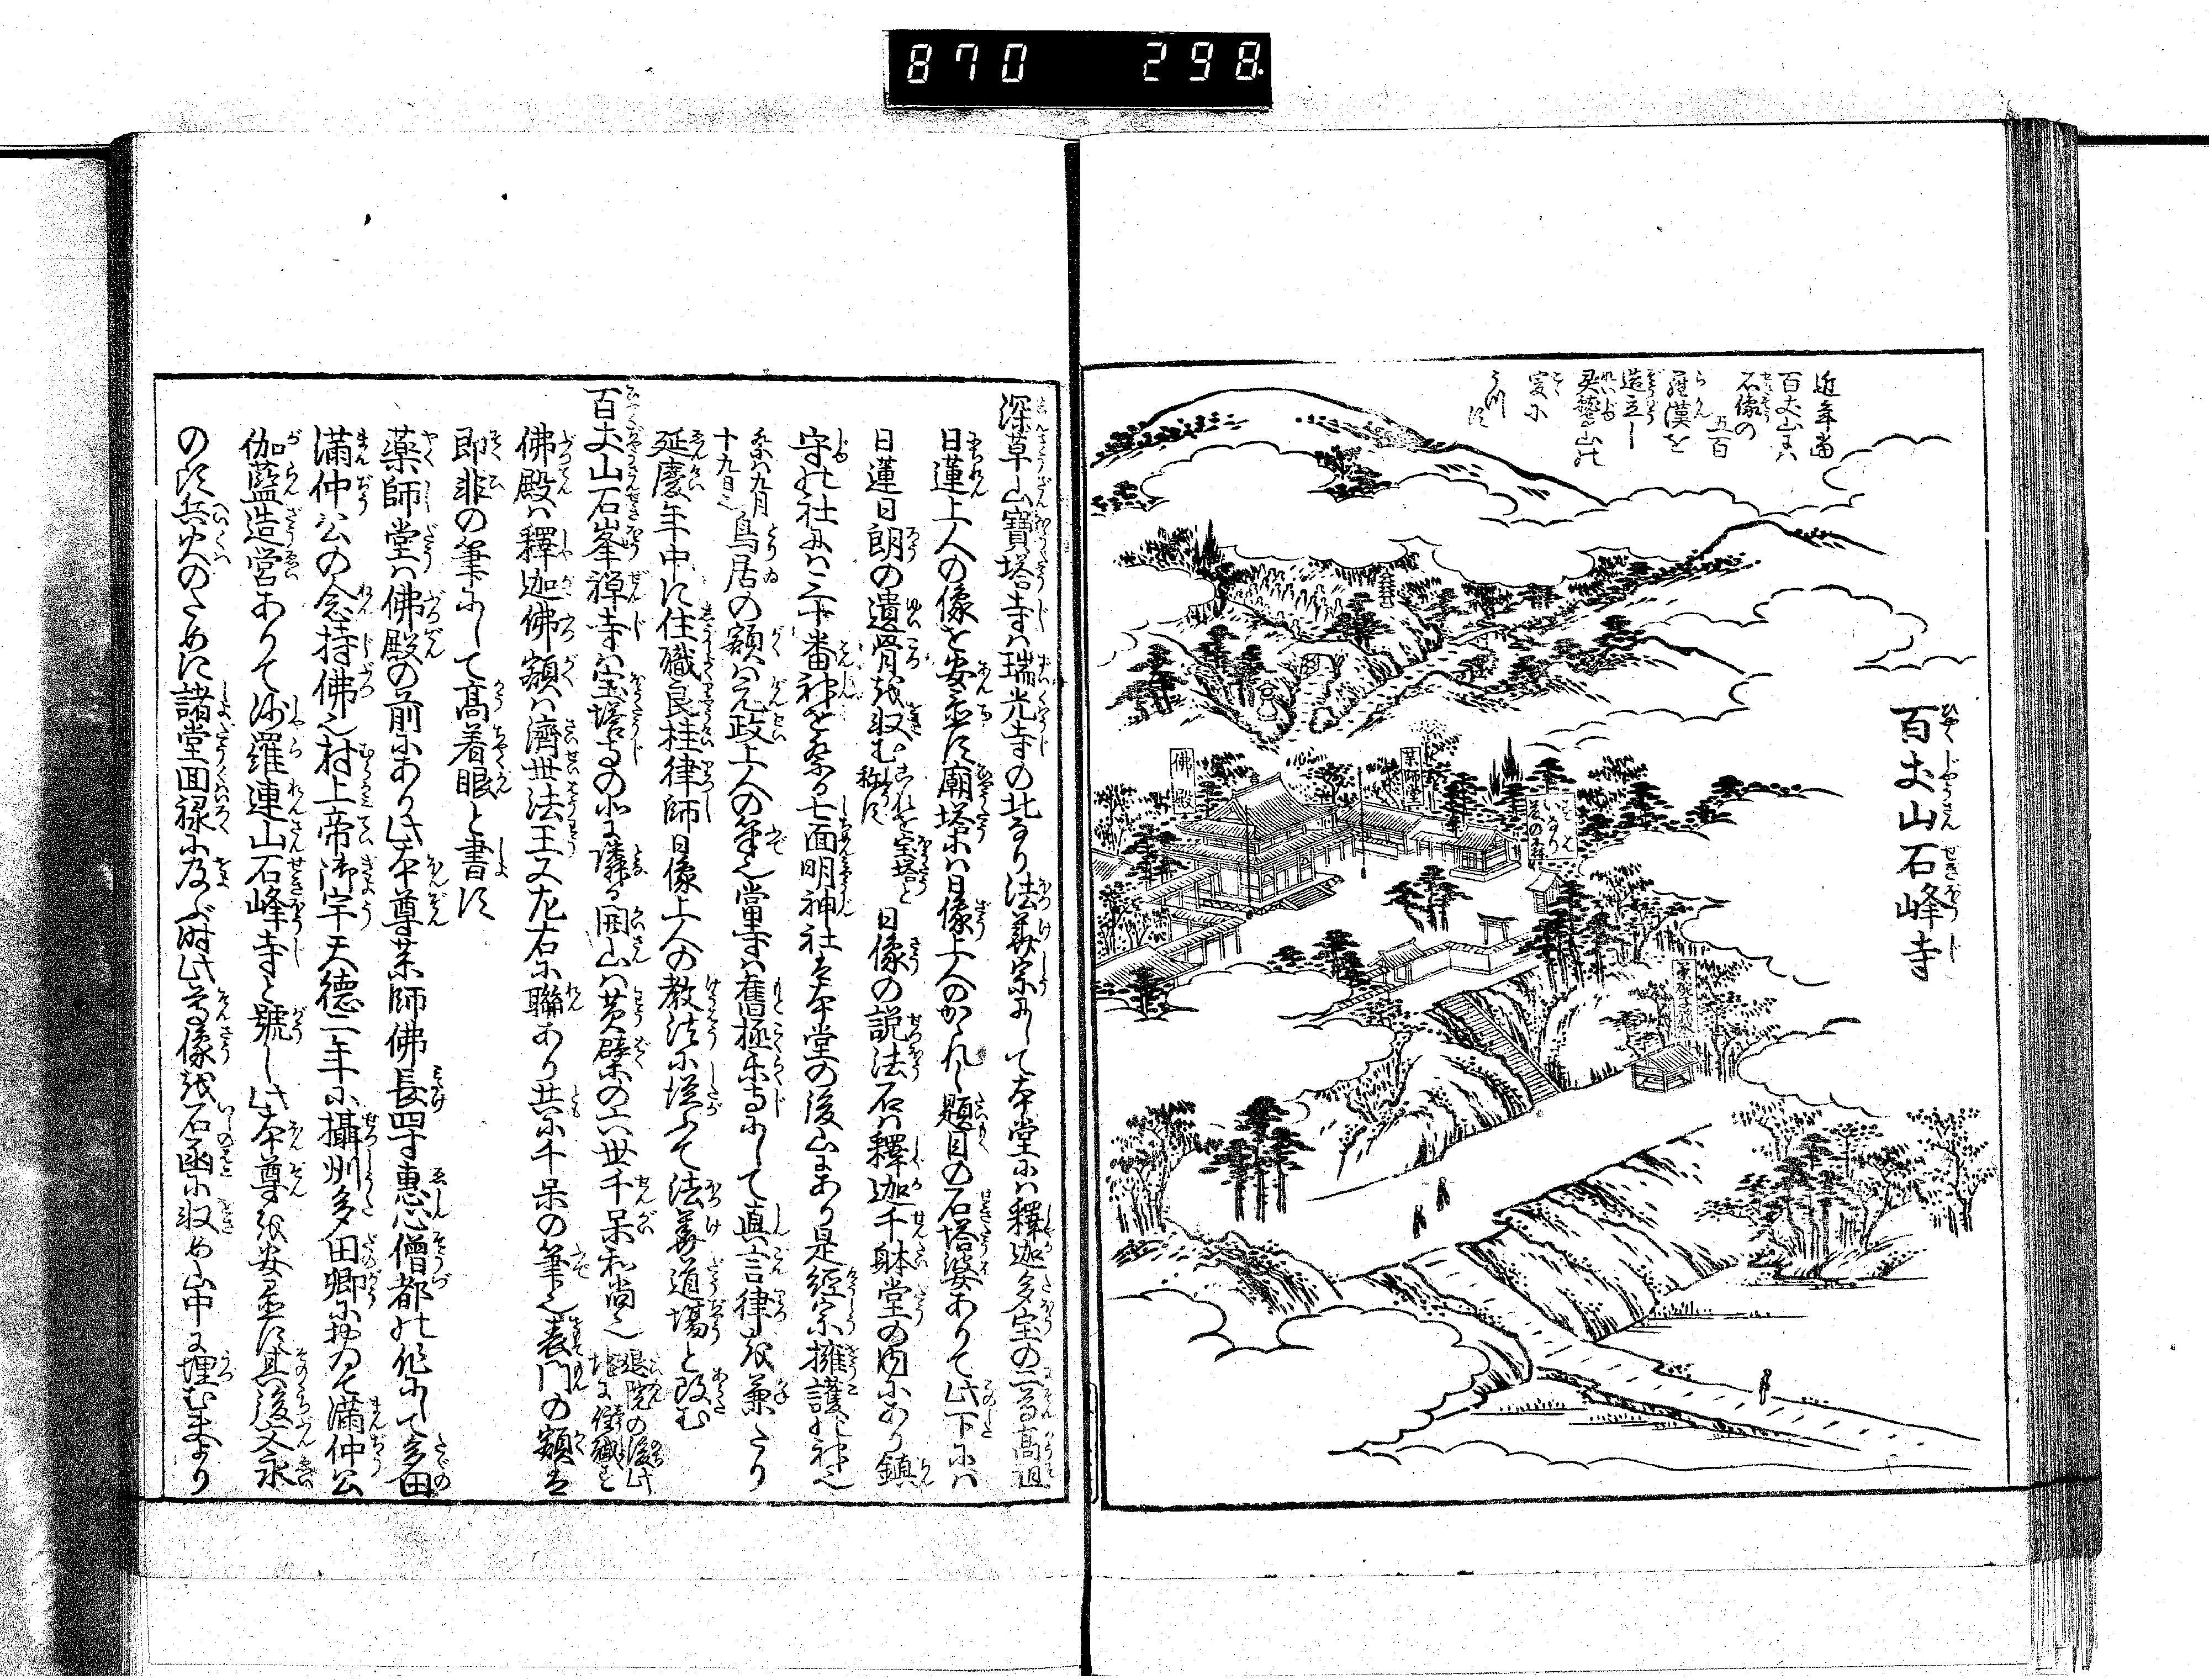 870 298
近年當
百丈山には
石像の
五百
羅漢を
造立し
霊鷲山の
変に
うつす
百丈山石峰寺
佛殿
薬師堂
深草山寶塔寺は瑞光寺の北なり法華宗にして本堂には釋迦多宝の二尊高祖
日蓮上人の像を安置す廟塔には日像上人のかゝれし題目の石塔婆ありて此下には
日蓮日朗の遺骨を収む
これを宝塔と
称す
日像の説法石は釋迦千躰堂の内にあり鎮
守の社には三十番神を祭る七面明神社は本堂の後山にあり是經宗擁護の神也
祭は九月
十九日也
鳥居の額は元政上人の筆也當寺は舊極樂寺にして真言律を兼たり
延慶年中に住職良桂律師日像上人の教法に従ふて法華道場と改む
百丈山石峯禅寺は宝塔寺の北に隣る開山は黄檗の六世千呆和尚也
退院の後此
地に住職す
佛殿は釋迦佛額は濟世法王又左右に聯あり共に千呆の筆也表門の額は
即非の筆にして高着眼と書す
薬師堂は佛殿の前にあり此本尊薬師佛長四寸惠心僧都の作にして多田
満仲公の念持佛也村上帝御宇天徳二年に攝州多田郷において満仲公
伽藍造営ありて沙羅連山石峰寺と號し此本尊を安置す其後文永
のころ兵火のために諸堂回禄に及ぶ時此尊像を石函に収め山中に埋む夫より